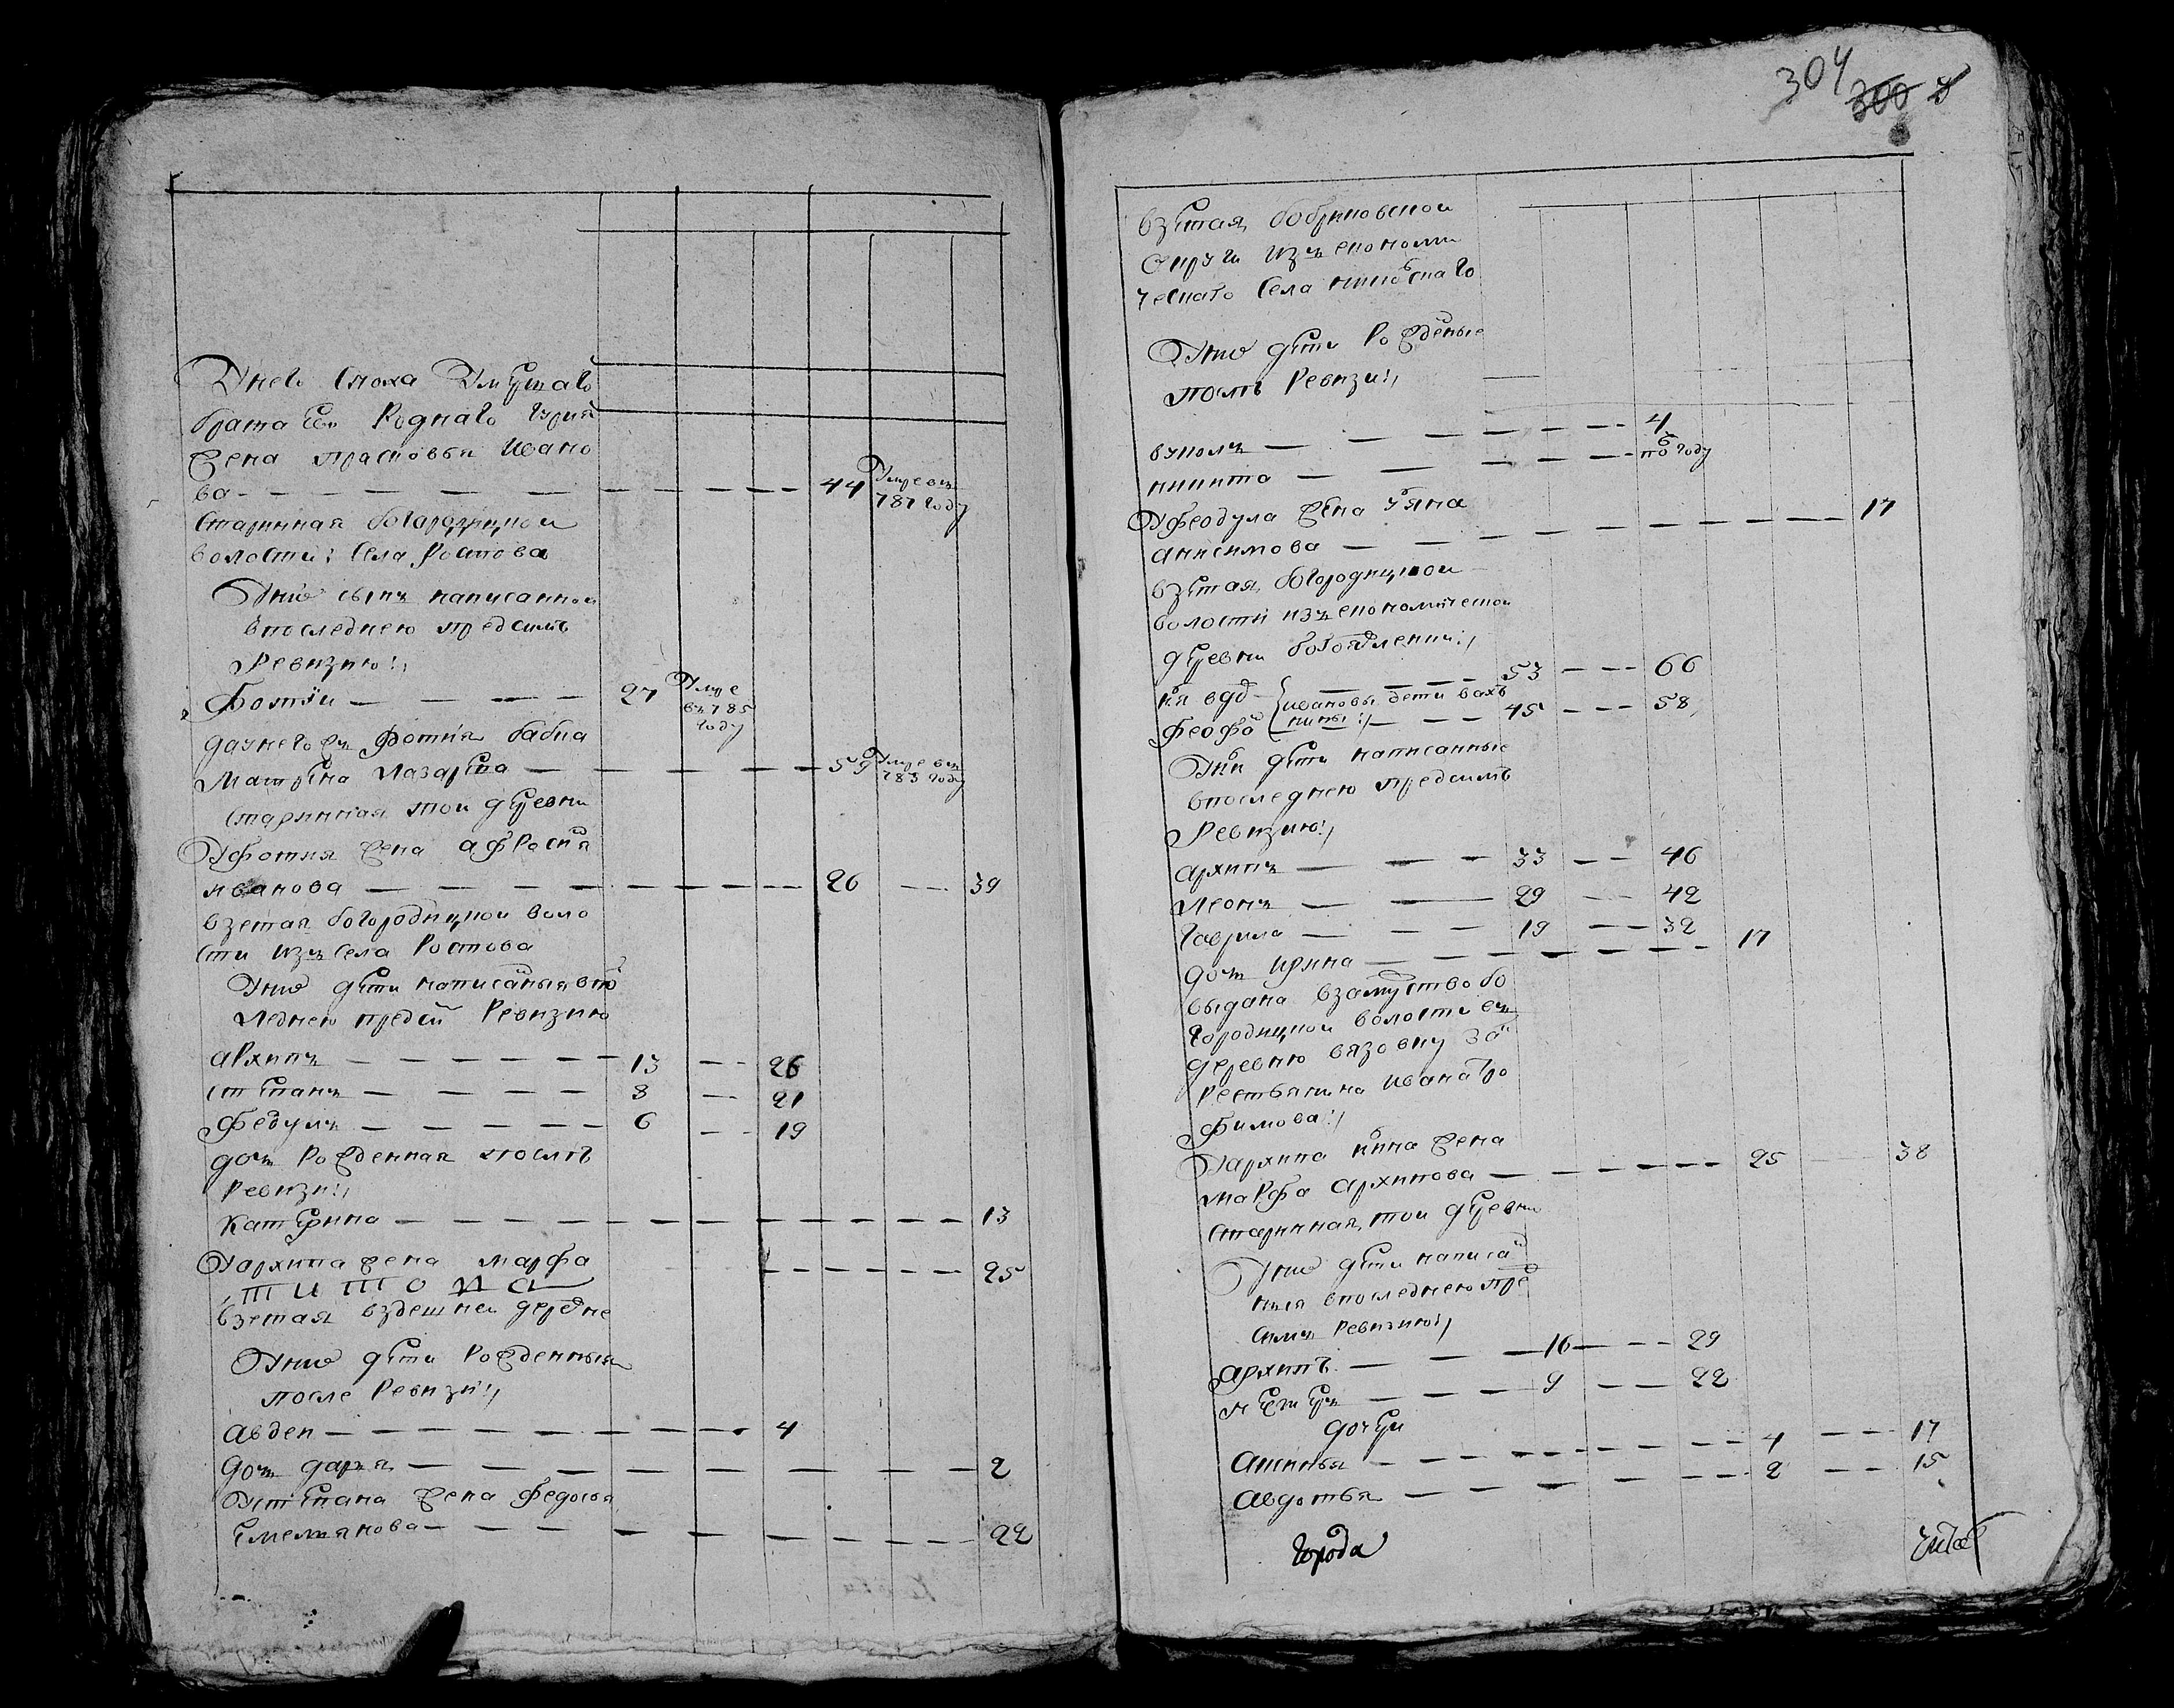 304 300
Унего сноха Умершаго
брата Ево Роднаго Гурия
жена прасковья Ивано
ва — — — 44 Умре въ 787 году
Старинная богародицкои
волости: Села Ростова
Уних сынъ написаннои
впоследнею предсимъ
Ревизию:,
Фотѣи — — — 27 Умре въ 785 году
даунегожъ фотия бабка
Матрена Лазарева — — — 59 Умре въ 783 году
Старинная тои деревни
Уфотия жена афросиня
иванова — — — 26 — 39
взетая богородицкои воло
сти изъ села Ростова
Унихъ дети написаныя впо
леднею предси Ревизию
архипъ — — — 13 — 26
степанъ — — — 8 — 21
Федулъ — — — 6 — 19
дочъ Рожденная послѣ
Ревизи:,
катерина — — — 13
Уархипа жена марфа
титова — — — 25
взетая вздешнеи деревне
Унихъ дети Рожденныя
после Ревизи:,
авдеи — — — 4
дочъ дарья — — — 2
Устепана жена федосья
Емельянова — — — 22
взетая бобриковскои
округи изъ економи
ческаго села
Унихъ дети Рожденые
послѣ Ревизи:,
вуколъ — — — 4
никита — — — по году
Уфеодула жена уляна
анисимова — — — 17
взетая богородицкои
волости изъ економическои
деревни
— — 53 — 66
ивановы дети
45 — 58
дети написанные
впоследнею предсимъ
Ревизию:,
архипъ — — — 33 — 46
Леонъ — — — 29 — 42
Гаврила — — — 19 — 32
дочъ ирина — — — 17
выдана взамуство бо
городицкои волости въ
деревню вязовку за
крестьянина ивана тро
фимова:,
Уархипа жена
марфа архипова — — — 25 — 38
старинная тои деревни
Унихъ дети написа
ныя впоследнею пре
симъ Ревизию:,
архипъ — — — 16 — 29
— — — 9 — 22
дочери
аксинья — — — 4 — 17
авдотья — — — 2 — 15
города